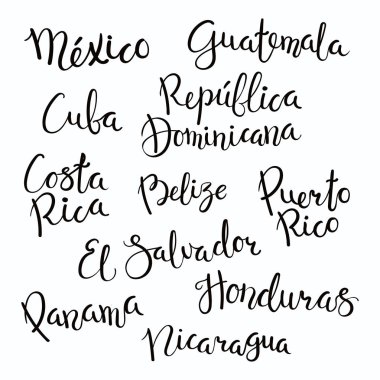 México
Guatemala
Cuba
República
Dominicana
Costa
Rica
Belize
Puerto
Rico
El Salvador
Panama
Honduras
Nicaragua